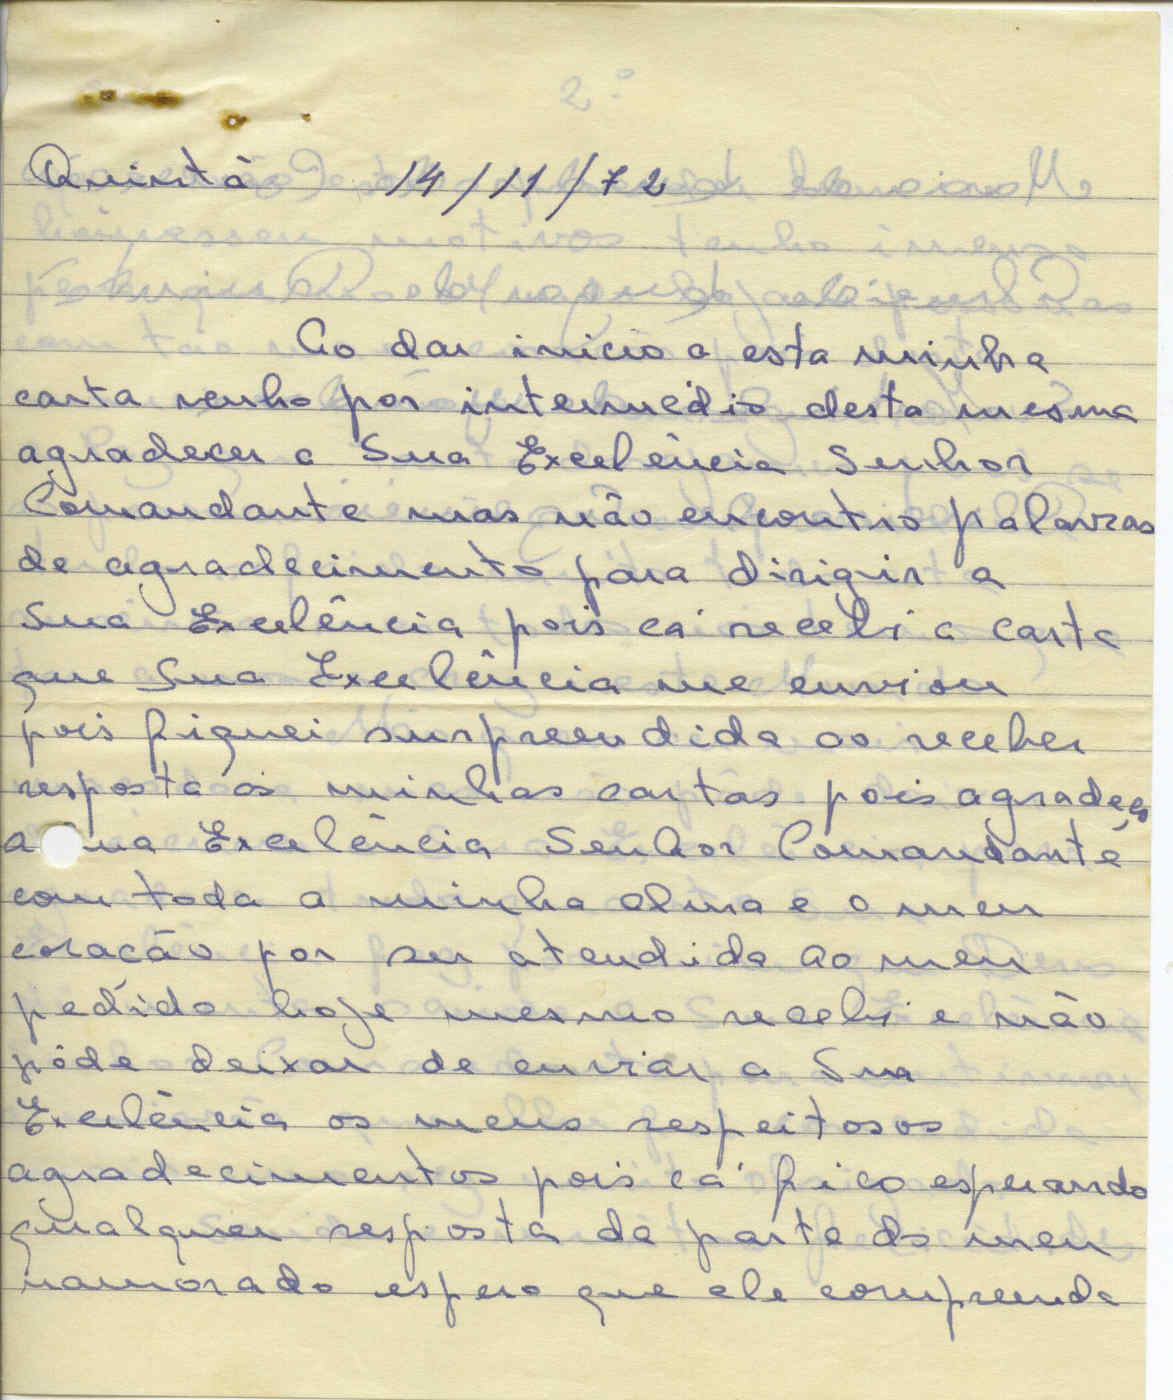 Quintà 14/11/72
Ao dar inicio a esta minha
carta venho por intermédio desta mesma
agradecer a Sua Excelência Senhor
Comandante mas não encontro palavras
de agradecimento para dirigir a
Sua Excelência pois cá recebi a carta
que Sua Excelência me enviou
pois fiquei surpreendida ao receber
resposta ás minhas cartas pois agradeço
a ua Excelência Senhor Comandante
com toda a minha alma e o meu
coração por ser atendida ao meu
pedido hoje mesmo recebi e não
póde deixar de enviar a Sua
Excelência os meus respeitosos
agradecimentos pois cá fico esperando
qualquer resposta da parte do meu
namorado espero que ele compreenda